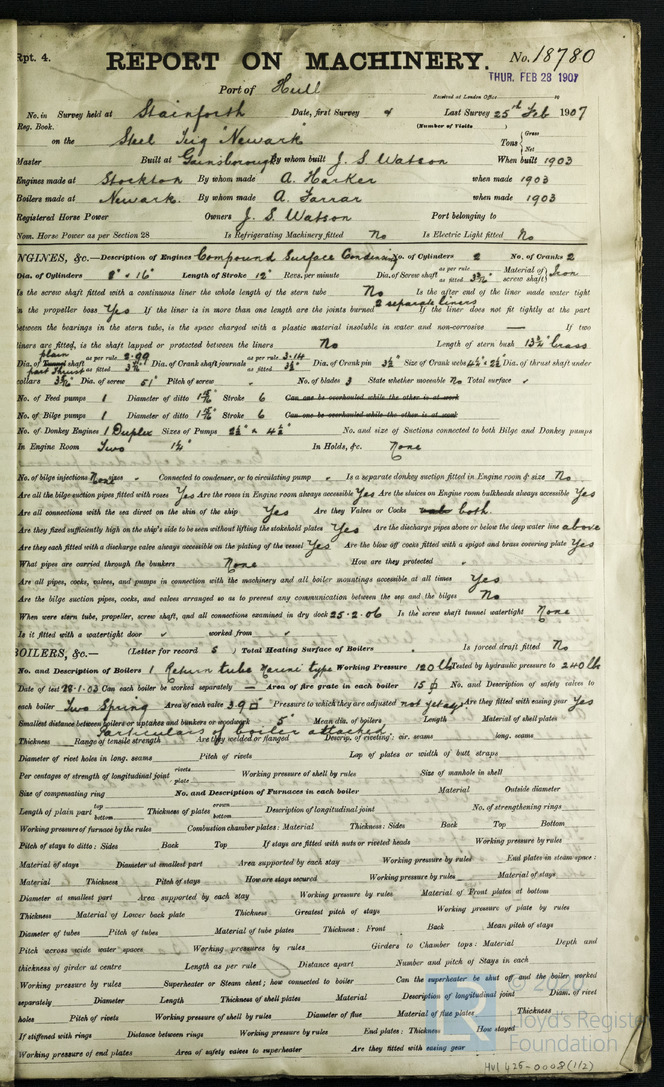 Rpt. 4. REPORT ON MACHINERY. No. 18780
Port of Hull THUR. FEB 28 1907
Received at London Office
No. in Survey held at Stainforth Date, first Survey Last Survey 25th Feb 1907
Reg. Book. (Number of Visits )
on the Steel Tug "Newark" Tons { Gross Net
Master Built at Gainsborough By whom built J. S. Watson When built 1903
Engines made at Stockton By whom made A. Harker when made 1903
Boilers made at Newark. By whom made A. Farrar when made 1903
Registered Horse Power Owners J. S. Watson Port belonging to
Nom. Horse Power as per Section 28 Is Refrigerating Machinery fitted No Is Electric Light fitted No
NGINES, &c.—Description of Engines Compound Surface Condensing No. of Cylinders 2 No. of Cranks 2
Dia. of Cylinders 8" × 16" Length of Stroke 12" Revs. per minute Dia. of Screw shaft as per rule as fitted Material of screw shaft } Iron
Is the screw shaft fitted with a continuous liner the whole length of the stern tube No Is the after end of the liner made water tight
in the propeller boss Yes If the liner is in more than one length are the joints burned 2 separate liners If the liner does not fit tightly at the part
between the bearings in the stern tube, is the space charged with a plastic material insoluble in water and non-corrosive — If two
liners are fitted, is the shaft lapped or protected between the liners No Length of stern bush 13¾" brass
Dia. of plain Tunnel shaft as per rule 2.99 as fitted Dia. of Crank shaft journals as per rule 3.14 as fitted 3½" Dia. of Crank pin 3½" Size of Crank webs Dia. of thrust shaft under
part Thrust collars Dia. of screw 51" Pitch of screw No. of blades 3 State whether moveable No Total surface
No. of Feed pumps 1 Diameter of ditto Stroke 6 Can one be overhauled while the other is at work
No. of Bilge pumps 1 Diameter of ditto Stroke 6 Can one be overhauled while the other is at work
No. of Donkey Engines 1 Duplex Sizes of Pumps No. and size of Suctions connected to both Bilge and Donkey pumps
In Engine Room Two In Holds, &c. None
No. of bilge injections None sizes Connected to condenser, or to circulating pump Is a separate donkey suction fitted in Engine room & size No
Are all the bilge suction pipes fitted with roses Yes Are the roses in Engine room always accessible Yes Are the sluices on Engine room bulkheads always accessible Yes
Are all connections with the sea direct on the skin of the ship Yes Are they Valves or Cocks both.
Are they fixed sufficiently high on the ship's side to be seen without lifting the stokehold plates Yes Are the discharge pipes above or below the deep water line above
Are they each fitted with a discharge valve always accessible on the plating of the vessel Yes Are the blow off cocks fitted with a spigot and brass covering plate Yes
What pipes are carried through the bunkers None How are they protected
Are all pipes, cocks, valves, and pumps in connection with the machinery and all boiler mountings accessible at all times Yes
Are the bilge suction pipes, cocks, and valves arranged so as to prevent any communication between the sea and the bilges No
When were stern tube, propeller, screw shaft, and all connections examined in dry dock 25.2.06 Is the screw shaft tunnel watertight None
Is it fitted with a watertight door worked from
BOILERS, &c.— (Letter for record S) Total Heating Surface of Boilers Is forced draft fitted No
No. and Description of Boilers 1 Return tube Marine type Working Pressure 120 lb Tested by hydraulic pressure to 240 lb
Date of test 28.1.03 Can each boiler be worked separately — Area of fire grate in each boiler 15 No. and Description of safety valves to
each boiler Two Spring Area of each valve 3.9 Pressure to which they are adjusted not yet adj Are they fitted with easing gear Yes
Smallest distance between boilers or uptakes and bunkers or woodwork 5" Mean dia. of boilers Length Material of shell plates
Particulars of boiler attached.
Thickness Range of tensile strength Are they welded or flanged Descrip. of riveting: cir. seams long. seams
Diameter of rivet holes in long. seams Pitch of rivets Lap of plates or width of butt straps
Per centages of strength of longitudinal joint rivets plate Working pressure of shell by rules Size of manhole in shell
Size of compensating ring No. and Description of Furnaces in each boiler Material Outside diameter
Length of plain part top bottom Thickness of plates crown bottom Description of longitudinal joint No. of strengthening rings
Working pressure of furnace by the rules Combustion chamber plates: Material Thickness: Sides Back Top Bottom
Pitch of stays to ditto: Sides Back Top If stays are fitted with nuts or riveted heads Working pressure by rules
Material of stays Diameter at smallest part Area supported by each stay Working pressure by rules End plates in steam space:
Material Thickness Pitch of stays How are stays secured Working pressure by rules Material of stays
Diameter at smallest part Area supported by each stay Working pressure by rules Material of Front plates at bottom
Thickness Material of Lower back plate Thickness Greatest pitch of stays Working pressure of plate by rules
Diameter of tubes Pitch of tubes Material of tube plates Thickness: Front Back Mean pitch of stays
Pitch across wide water spaces Working pressures by rules Girders to Chamber tops: Material Depth and
thickness of girder at centre Length as per rule Distance apart Number and pitch of Stays in each
Working pressure by rules Superheater or Steam chest; how connected to boiler Can the superheater be shut off and the boiler worked
separately Diameter Length Thickness of shell plates Material Description of longitudinal joint Diam. of rivet
holes Pitch of rivets Working pressure of shell by rules Diameter of flue Material of flue plates Thickness
If stiffened with rings Distance between rings Working pressure by rules End plates: Thickness How stayed
Working pressure of end plates Area of safety valves to superheater Are they fitted with easing gear
Lloyd's Register
Foundation
HUL425-0008 (1/2)